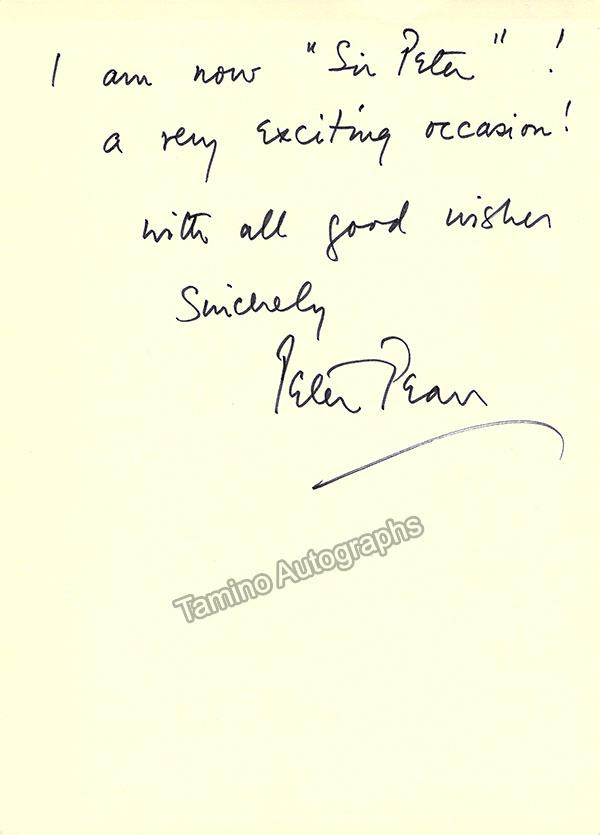 I am now "Sir Peter" !
a very exciting occasion!
with all good wishes
Sincerely
Peter Pears
Tamino Autographs